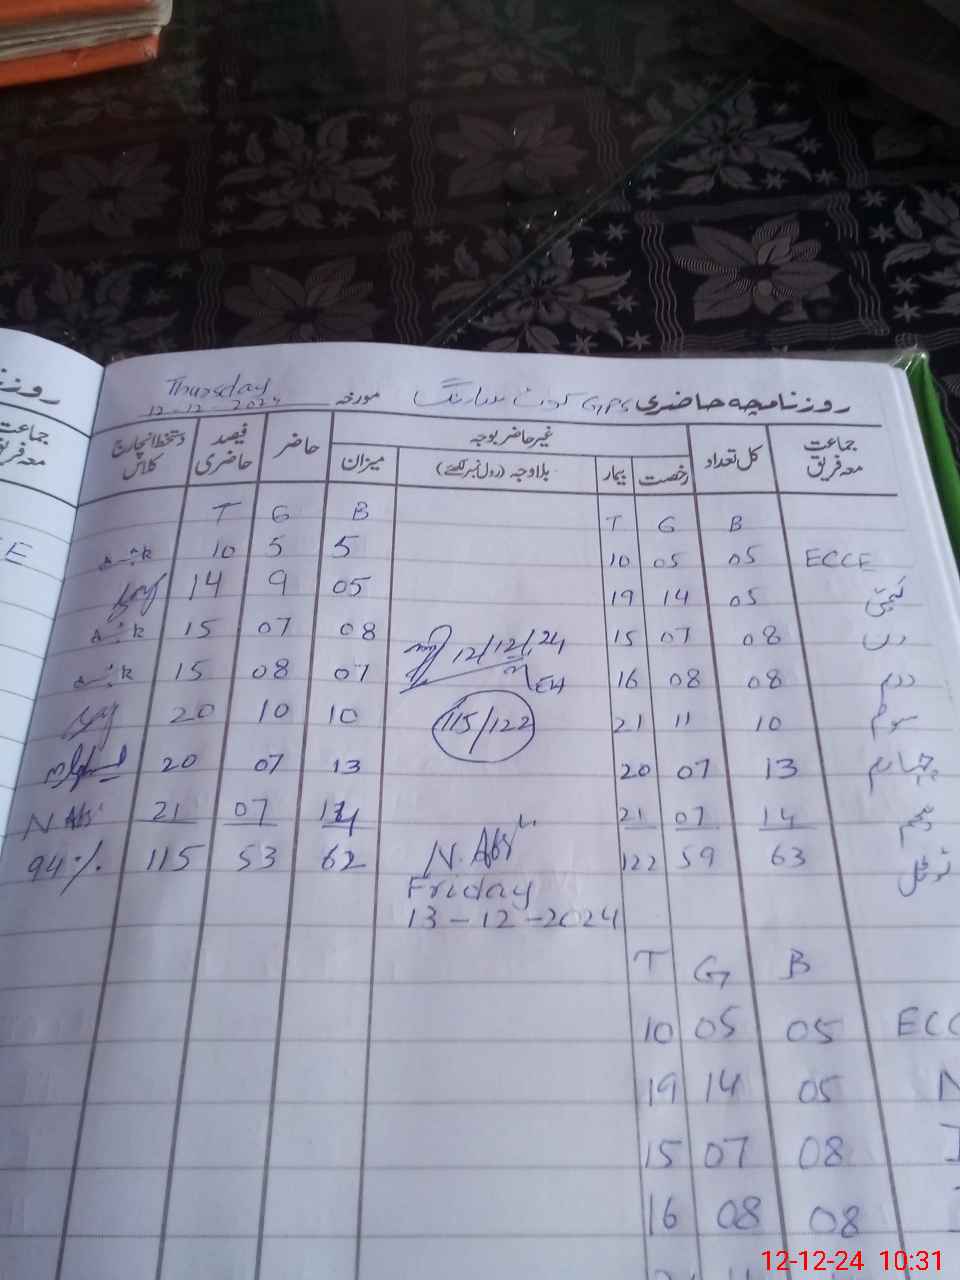 روزنامچہ حاضری GPS کوٹ مورخہ Thursday 12-12-2024
جماعت معہ فریق کل تعداد غیر حاضر بوجہ حاضر فیصد حاضری دستخط انچارج کلاس
رخصت بیمار بلاوجہ (رول نمبر لکھئے) میزان
B G T B G T
ECCE 05 05 10 5 5 10
کچی 05 14 19 05 9 14
08 07 15 08 07 15
دوم 08 08 16 07 08 15
سوم 10 11 21 10 10 20
چہارم 13 07 20 13 07 20
پنجم 14 07 21 14 07 21
ٹوٹل 63 59 122 62 53 115 94%
12/12/24
115/122
Friday
13-12-2024
B G T
05 05 10
05 14 19
08 07 15
08 08 16
روزنا
جماعت
معہ فریق
12-12-24 10:31